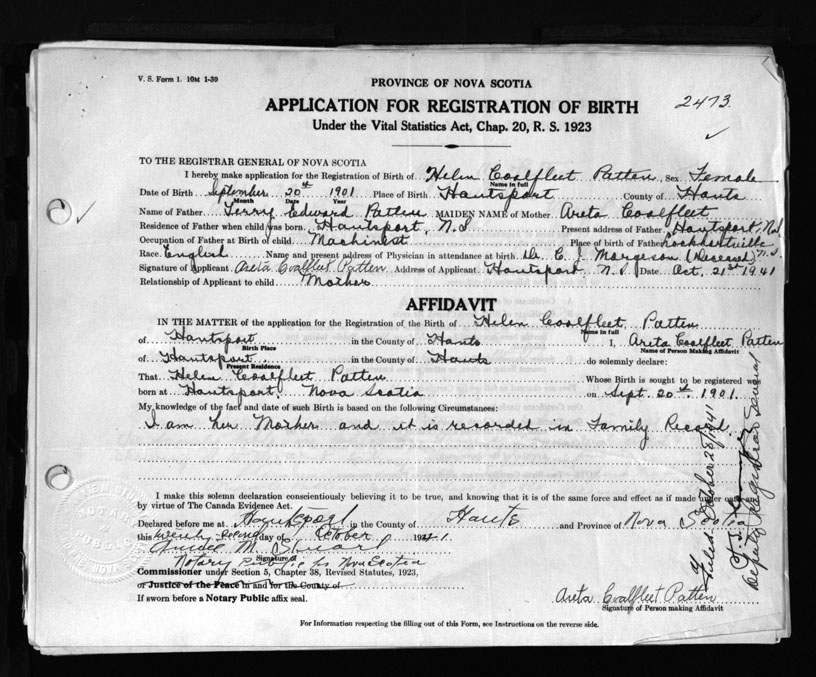 V. S. Form 1. 10M 1-39
PROVINCE OF NOVA SCOTIA
2473
APPLICATION FOR REGISTRATION OF BIRTH
Under the Vital Statistics Act, Chap. 20, R. S. 1923
TO THE REGISTRAR GENERAL OF NOVA SCOTIA
I hereby make application for the Registration of Birth of Helen Coalfleet Patten, Sex Female
Name in full
Date of Birth September 20th 1901 Place of Birth Hantsport County of Hants
Month Date Year
Name of Father Edward Patten MAIDEN NAME of Mother Areta Coalfleet
Residence of Father when child was born. Hantsport, N.S Present address of Father Hantsport, N.S.
Occupation of Father at Birth of child Machinist Place of birth of Father Lockhartville N.S
Race English Name and present address of Physician in attendance at birth Dr. C. J. Margeson (Deceased)
Signature of Applicant Areta Coalfleet Patten Address of Applicant Hantsport N.S Date Oct. 21st 1941
Relationship of Applicant to child Mother
AFFIDAVIT
IN THE MATTER of the application for the Registration of the Birth of Helen Coalfleet Patten
Name in full
of Hantsport in the County of Hants I, Areta Coalfleet Patten
Birth Place Name of Person Making Affidavit
of Hantsport in the County of Hants do solemnly declare:
Present Residence
That Helen Coalfleet Patten Whose Birth is sought to be registered was
born at Hantsport, Nova Scotia on Sept. 20th. 1901.
My knowledge of the fact and date of such Birth is based on the following Circumstances:
I am her Mother and it is recorded in Family Record.
I make this solemn declaration conscientiously believing it to be true, and knowing that it is of the same force and effect as if made under oath and
by virtue of The Canada Evidence Act.
Declared before me at Hantsport in the County of Hants and Province of Nova Scotia
this twenty day of October 1941.
Signature of
Notary Public for Nova Scotia
Commissioner under Section 5, Chapter 38, Revised Statutes, 1923,
or Justice of the Peace in and for the County of
If sworn before a Notary Public affix seal.
Areta Coalfleet Patten
Signature of Person making Affidavit
For Information respecting the filling out of this Form, see Instructions on the reverse side.
Filed October 28/1941
Deputy Registrar General